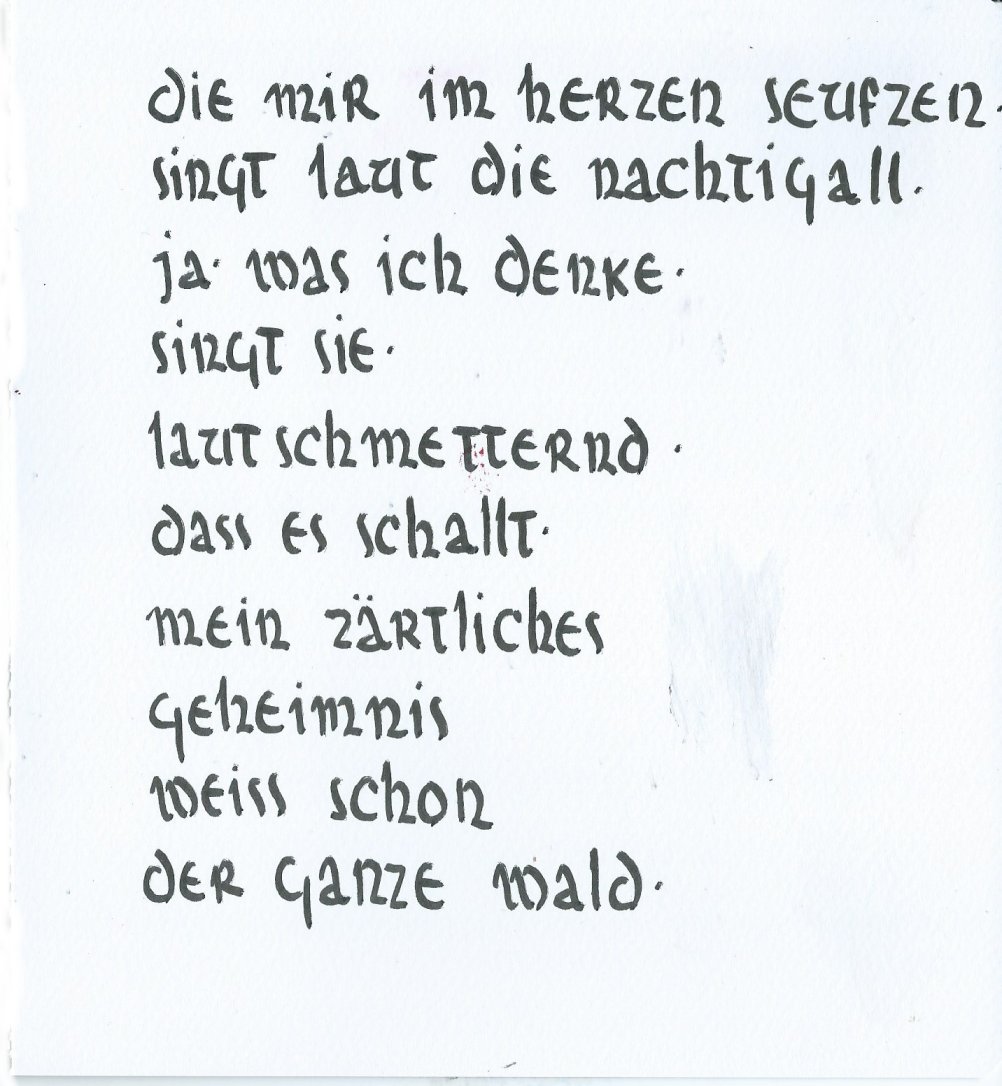 die mir im herzen seufzen·
singt laut die nachtigall·
ja· was ich denke·
singt sie·
laut schmetternd ·
dass es schallt·
mein zärtliches
geheimnis
weiss schon
der ganze wald·